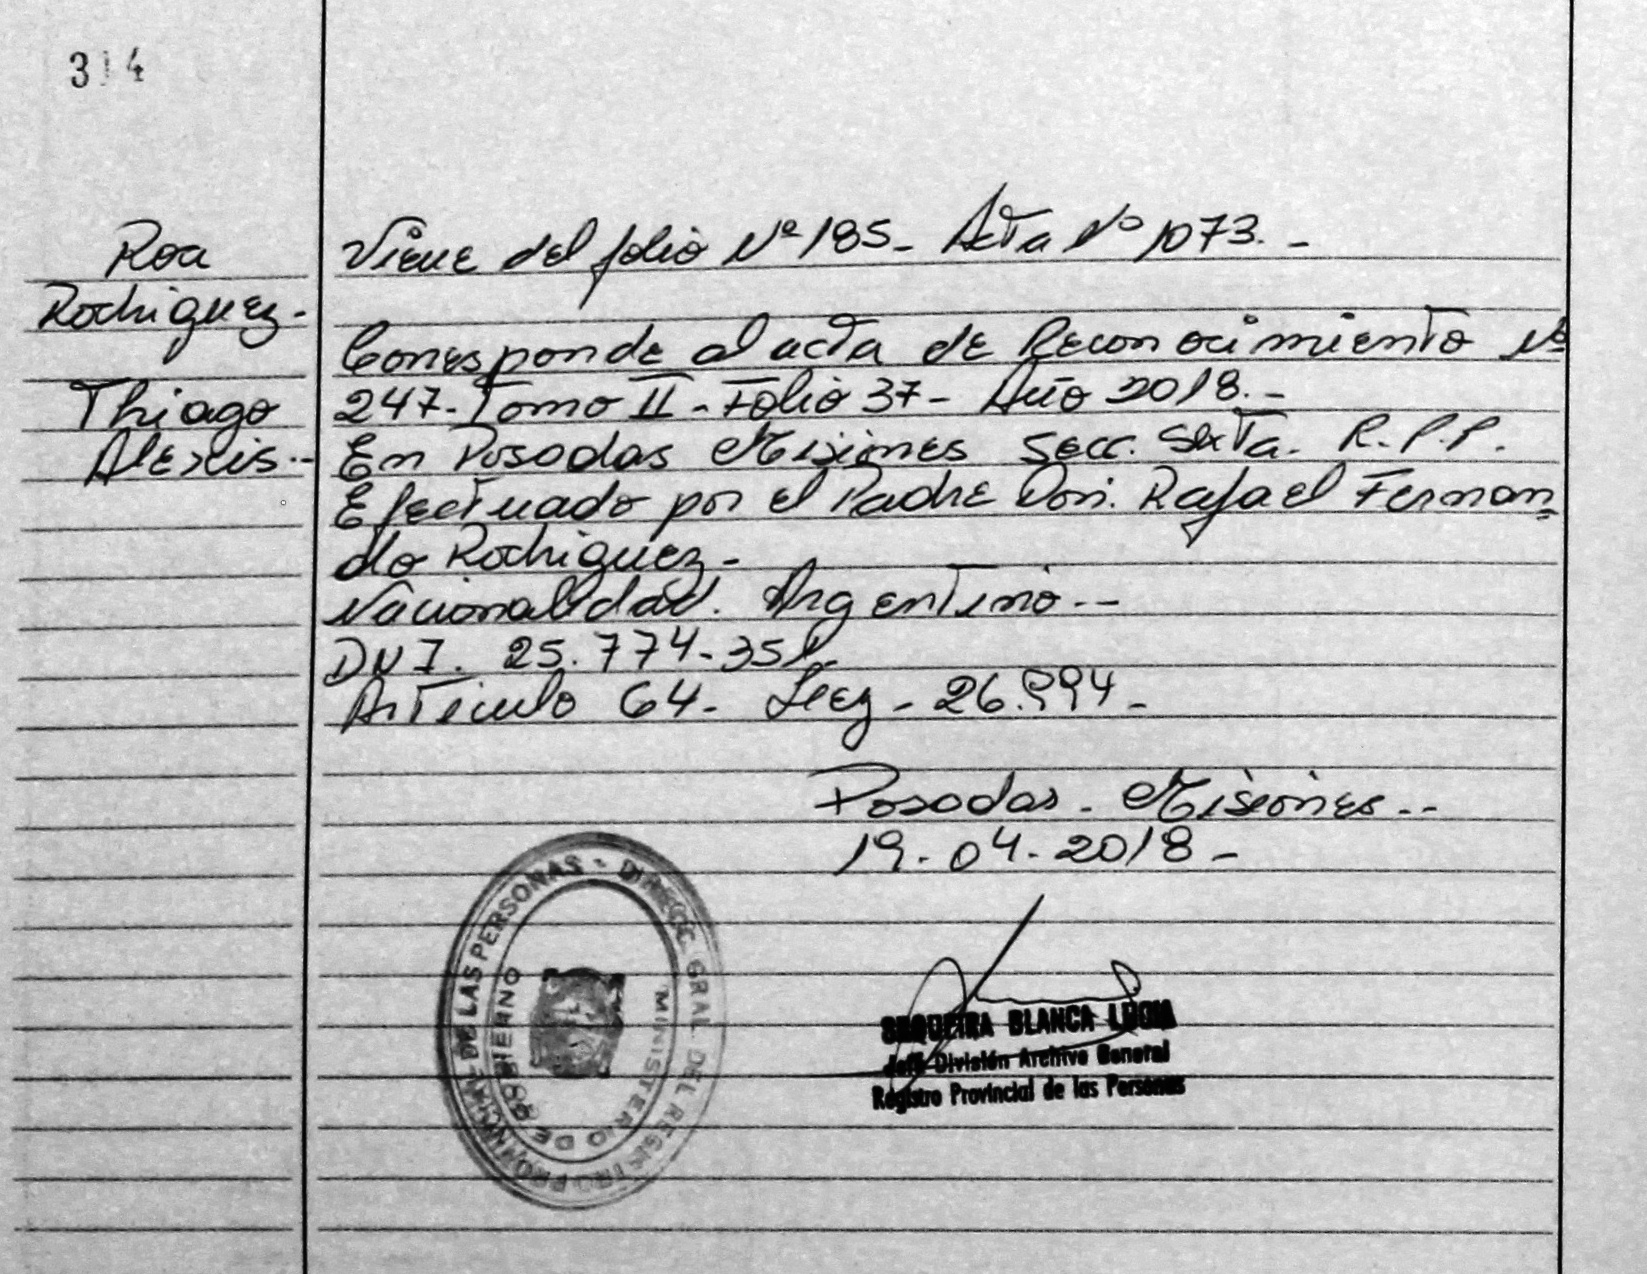 314
Roa
Rodriguez.-
Thiago
Alexis.--
Viene del folio Nº 185- Acta Nº 1073.-
Corresponde al acta de Reconocimiento Nº
247- Tomo II - Folio 37- Año 2018.-
En Posadas Misiones Secc. Sexta. R.P.P.
Efectuado por el Padre Don. Rafael Fernan=
do Rodriguez-
Nacionalidad. Argentino.--
DNI. 25.774-351-
Articulo 64- Ley - 26.994-
Posadas - Misiones--
19-04-2018-
DIRECC. GRAL. DEL REGISTRO PROVINCIAL DE LAS PERSONAS -
MINISTERIO DE GOBIERNO
SEQUEIRA BLANCA LUCIA
Jefe División Archivo General
Registro Provincial de las Personas